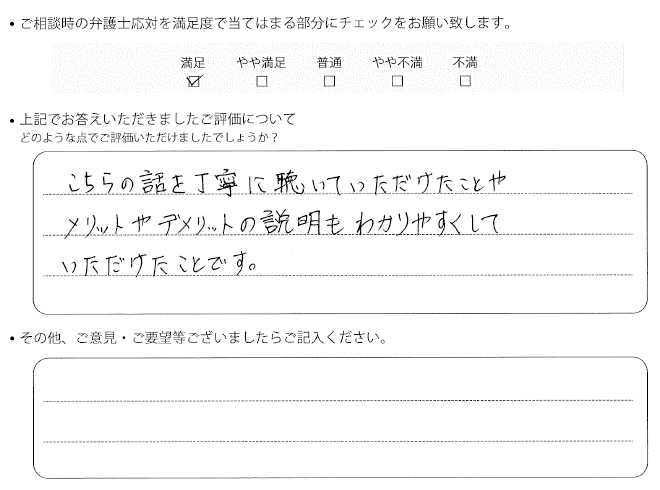 • ご相談時の弁護士応対を満足度で当てはまる部分にチェックをお願い致します。
満足 やや満足 普通 やや不満 不満
☑ □ □ □ □
• 上記でお答えいただきましたご評価について
どのような点でご評価いただけましたでしょうか？
こちらの話を丁寧に聴いていただけたことや
メリットやデメリットの説明もわかりやすくして
いただけたことです。
• その他、ご意見・ご要望等ございましたらご記入ください。